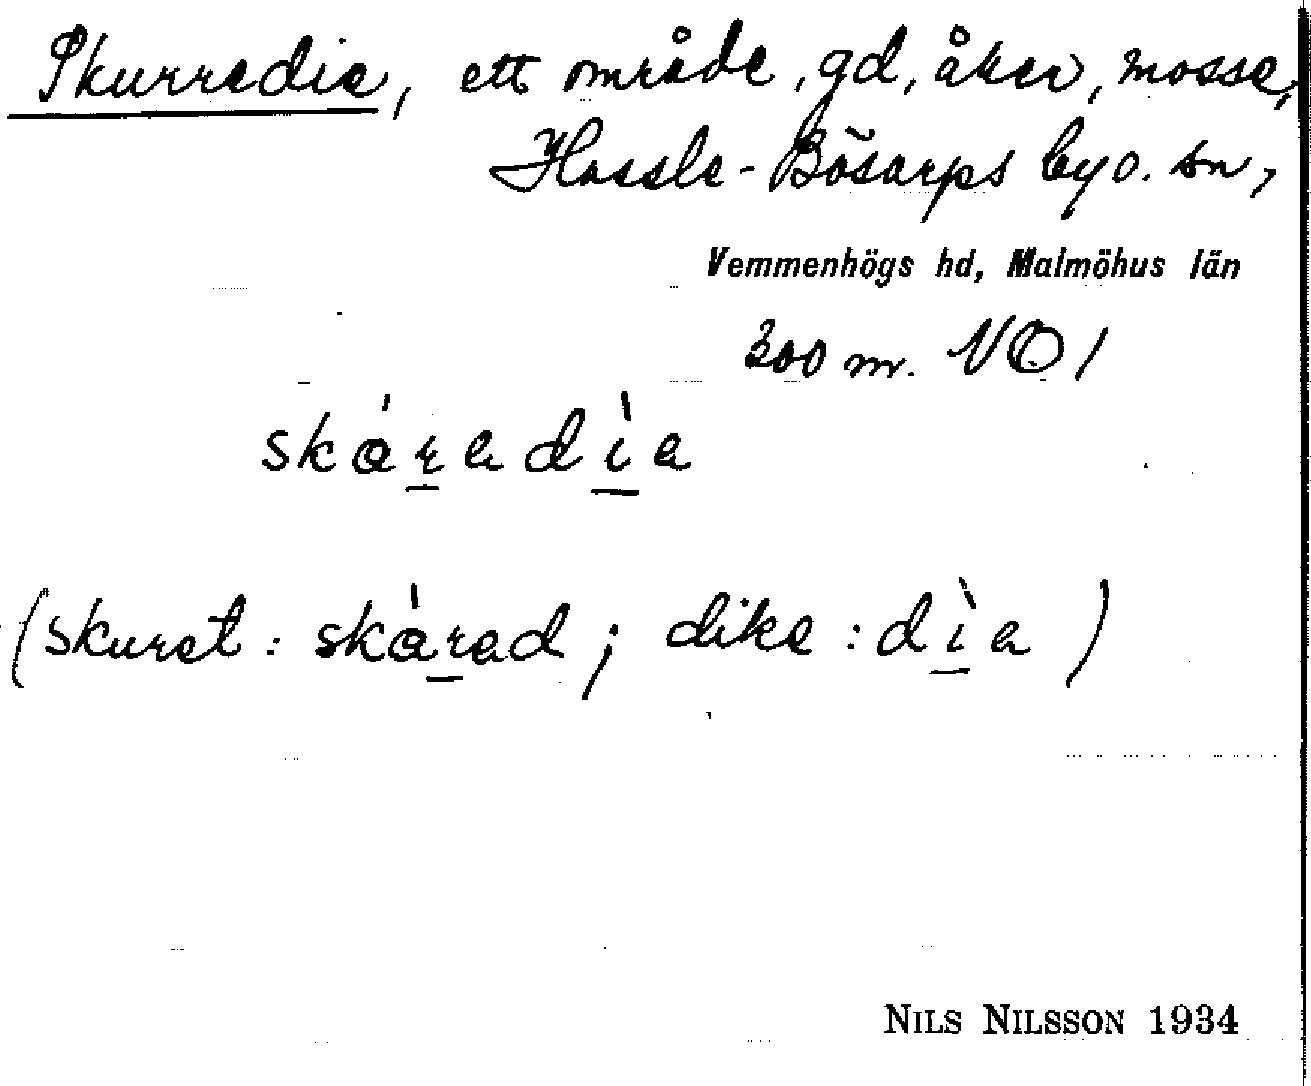 Skurredie, ett område, gd, åker, mosse,
Hassle-Bösarps by o. sn,
Vemmenhögs hd, Malmöhus län
300 m. NO /
skáradìa
(skuret: skàrad; dike: dìa)
NILS NILSSON 1934